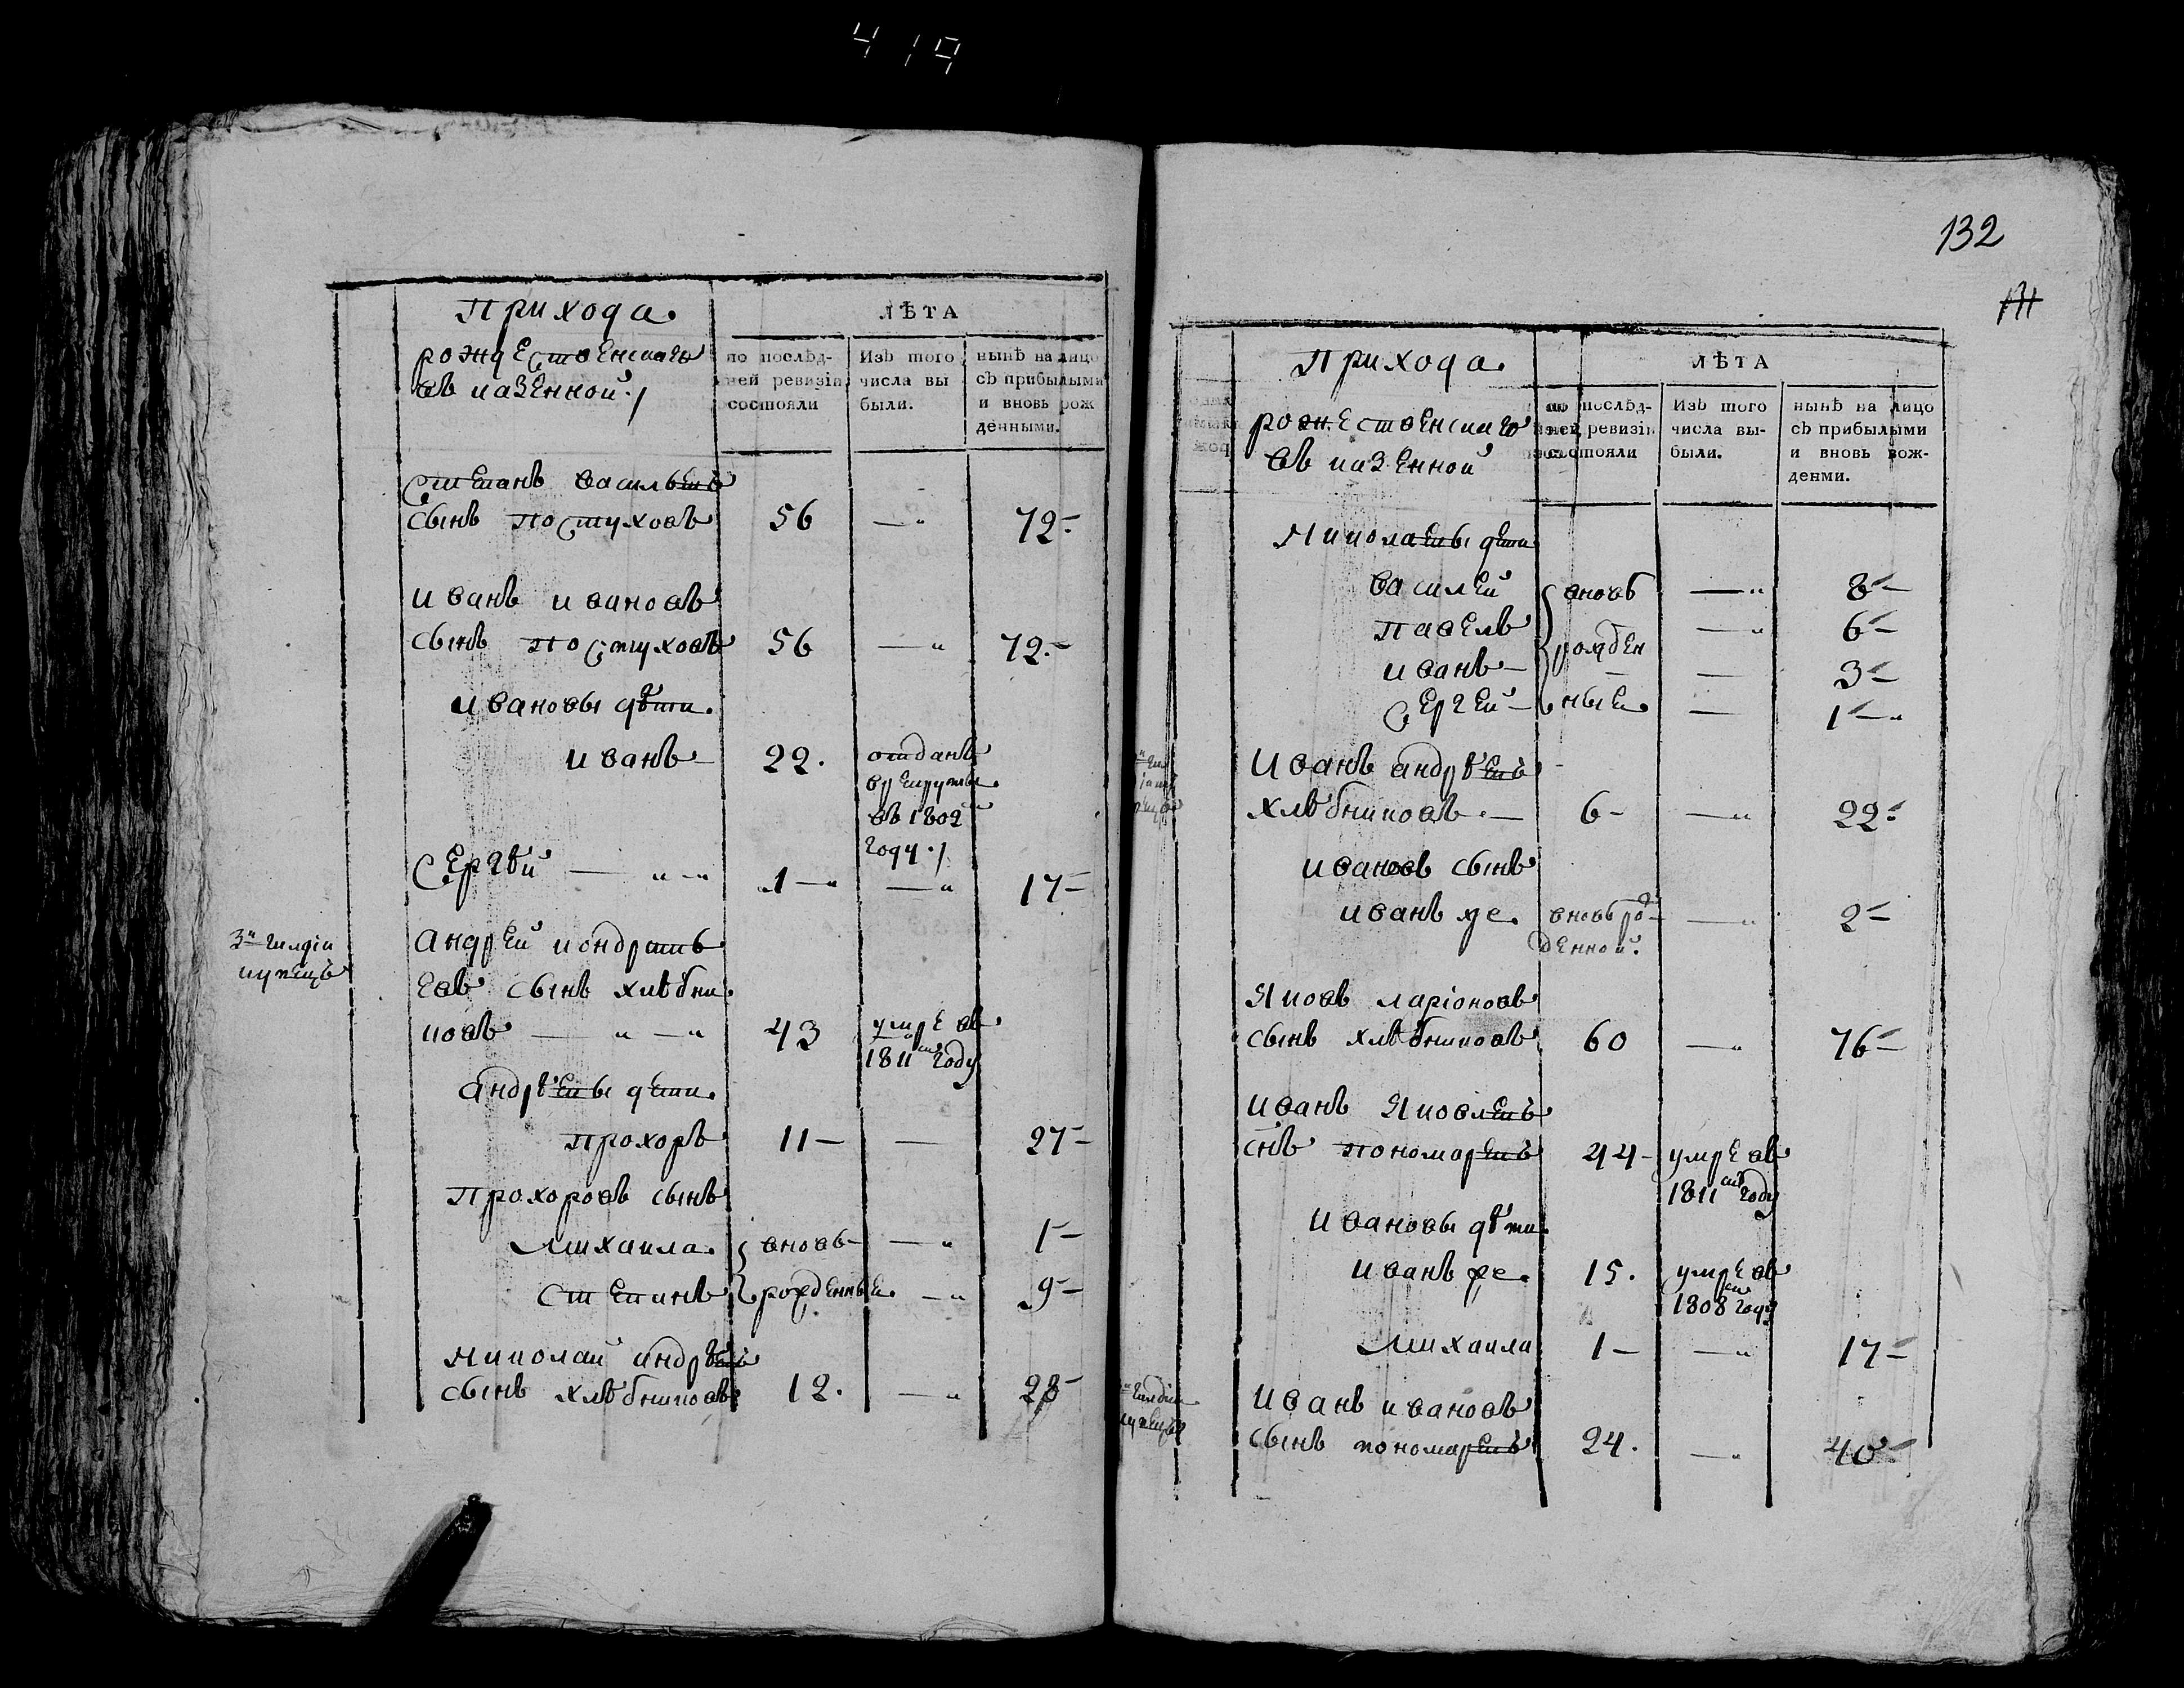 419
Прихода
рождественскаго
въ казенной
ЛѢТА
по послѣд-
ней ревизіи
состояли
Изъ того
числа вы
были.
нынѣ на лицо
съ прибылыми
и вновь рож
денными.
Степанъ васильевъ
сынъ постуховъ 56 — 72
иванъ ивановъ
сынъ постуховъ 56 — 72
ивановы дѣти
иванъ 22. отданъ
в рекруты
въ 1802
году
Сергѣй — 1 — 17
3й гилдіи
купецъ
андрей кондрать
евъ сынъ хлѣбни
ковъ — 43 умре въ
1811м году
андрѣевы дети
прохоръ 11 — 27
Прохоровъ сынъ
михаила вновь — 1
рожденные — 9
Николай андрѣевъ
сынъ хлѣбниковъ 12. — 28
132
Прихода
рожественскаго
въ казенной
ЛѢТА
по послѣд-
ней ревизіи
состояли
Изъ того
числа вы-
были.
нынѣ на лицо
съ прибылыми
и вновь рож-
денми.
Николаевы дети
василей вновь — 8
павелъ — 6
иванъ рожден — 3
Сергей ные — 1
Иванъ андрѣевъ
хлѣбниковъ 6 — 22
ивановъ сынъ
иванъ же вновь ро — 2
денной
Яковъ ларіоновъ
сынъ хлѣбниковъ 60 — 76
иванъ Яковлевъ
снъ пономаревъ 44 умре въ
1811м году
Ивановы дѣти
иванъ же 15. умре въ
1808м году
михаила 1 — 17
гилдіи
купецъ
Иванъ ивановъ
сынъ пономаревъ 24. — 40